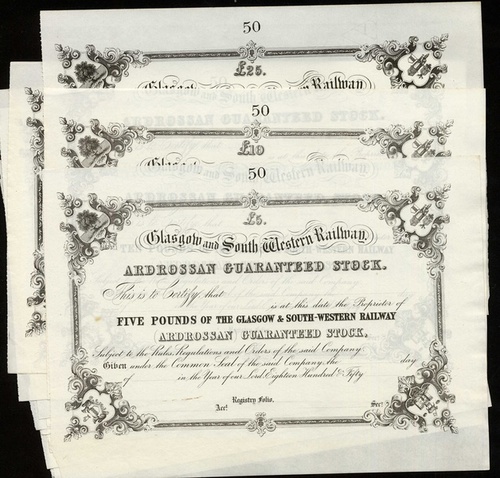 50
£25.
Glasgow and South Western Railway
50
ARDROSSAN GUARANTEED STOCK.
£10
Glasgow and South Western Railway
50
£5.
Glasgow and South Western Railway,
ARDROSSAN GUARANTEED STOCK.
This is to Certify that
is at this date the Proprietor of
FIVE POUNDS OF THE GLASGOW & SOUTH-WESTERN RAILWAY
ARDROSSAN GUARANTEED STOCK,
Subject to the Rules, Regulations and Orders of the said Company
Given under the Common Seal of the said Company, the day
of in the Year of our Lord Eighteen Hundred & Fifty
Registry Folio.
Acct. Secy.